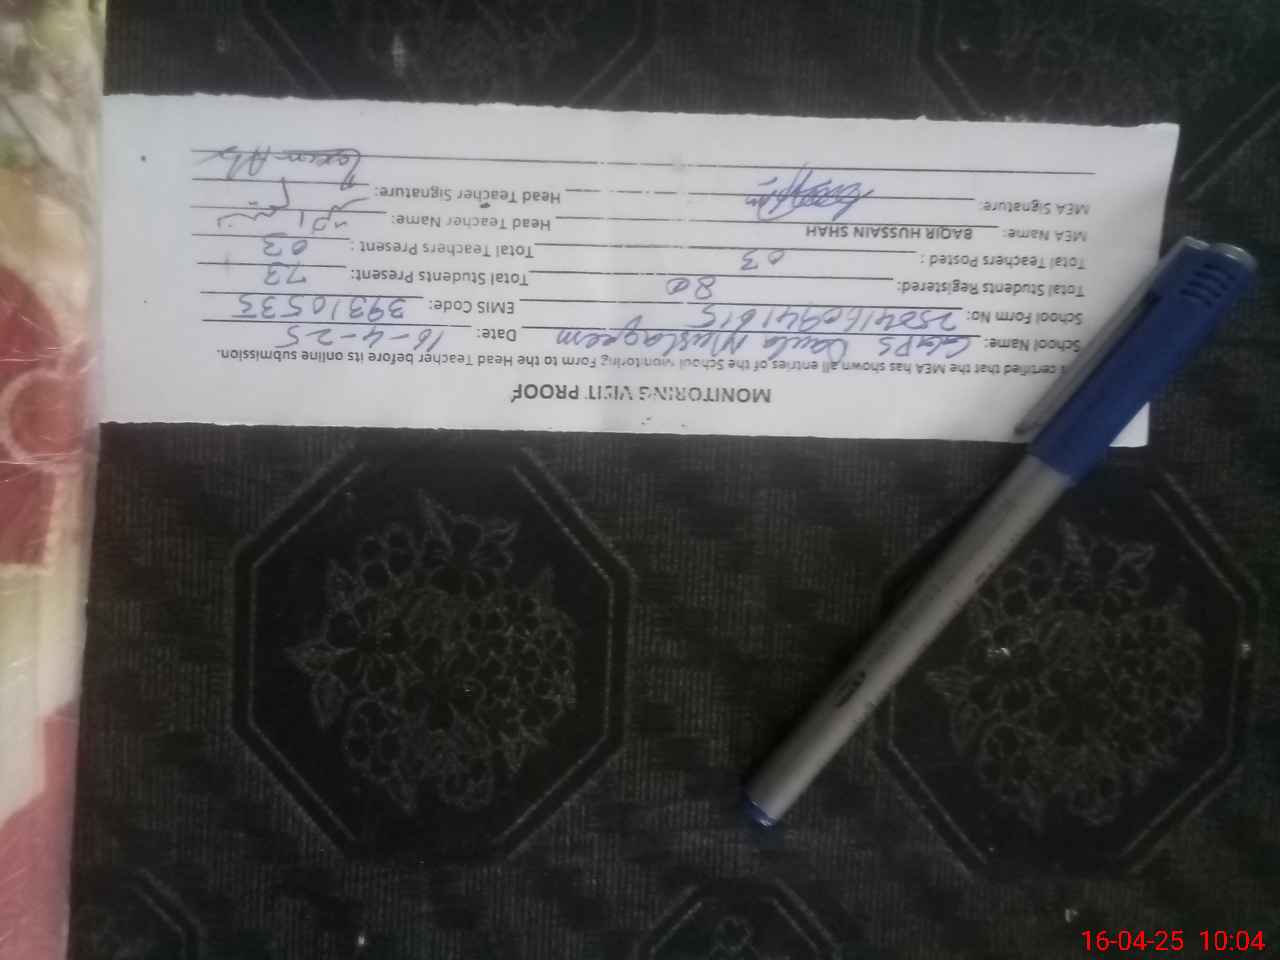 MONITORING VISIT PROOF
certified that the MEA has shown all entries of the School Monitoring Form to the Head Teacher before its online submission.
School Name: GGPS Daula Mustaqeem Date: 16-4-25
School Form No: EMIS Code: 39310535
Total Students Registered: 80 Total Students Present: 73
Total Teachers Posted: 03 Total Teachers Present: 03
MEA Name: BAQIR HUSSAIN SHAH Head Teacher Name:
MEA Signature: Head Teacher Signature:
16-04-25 10:04